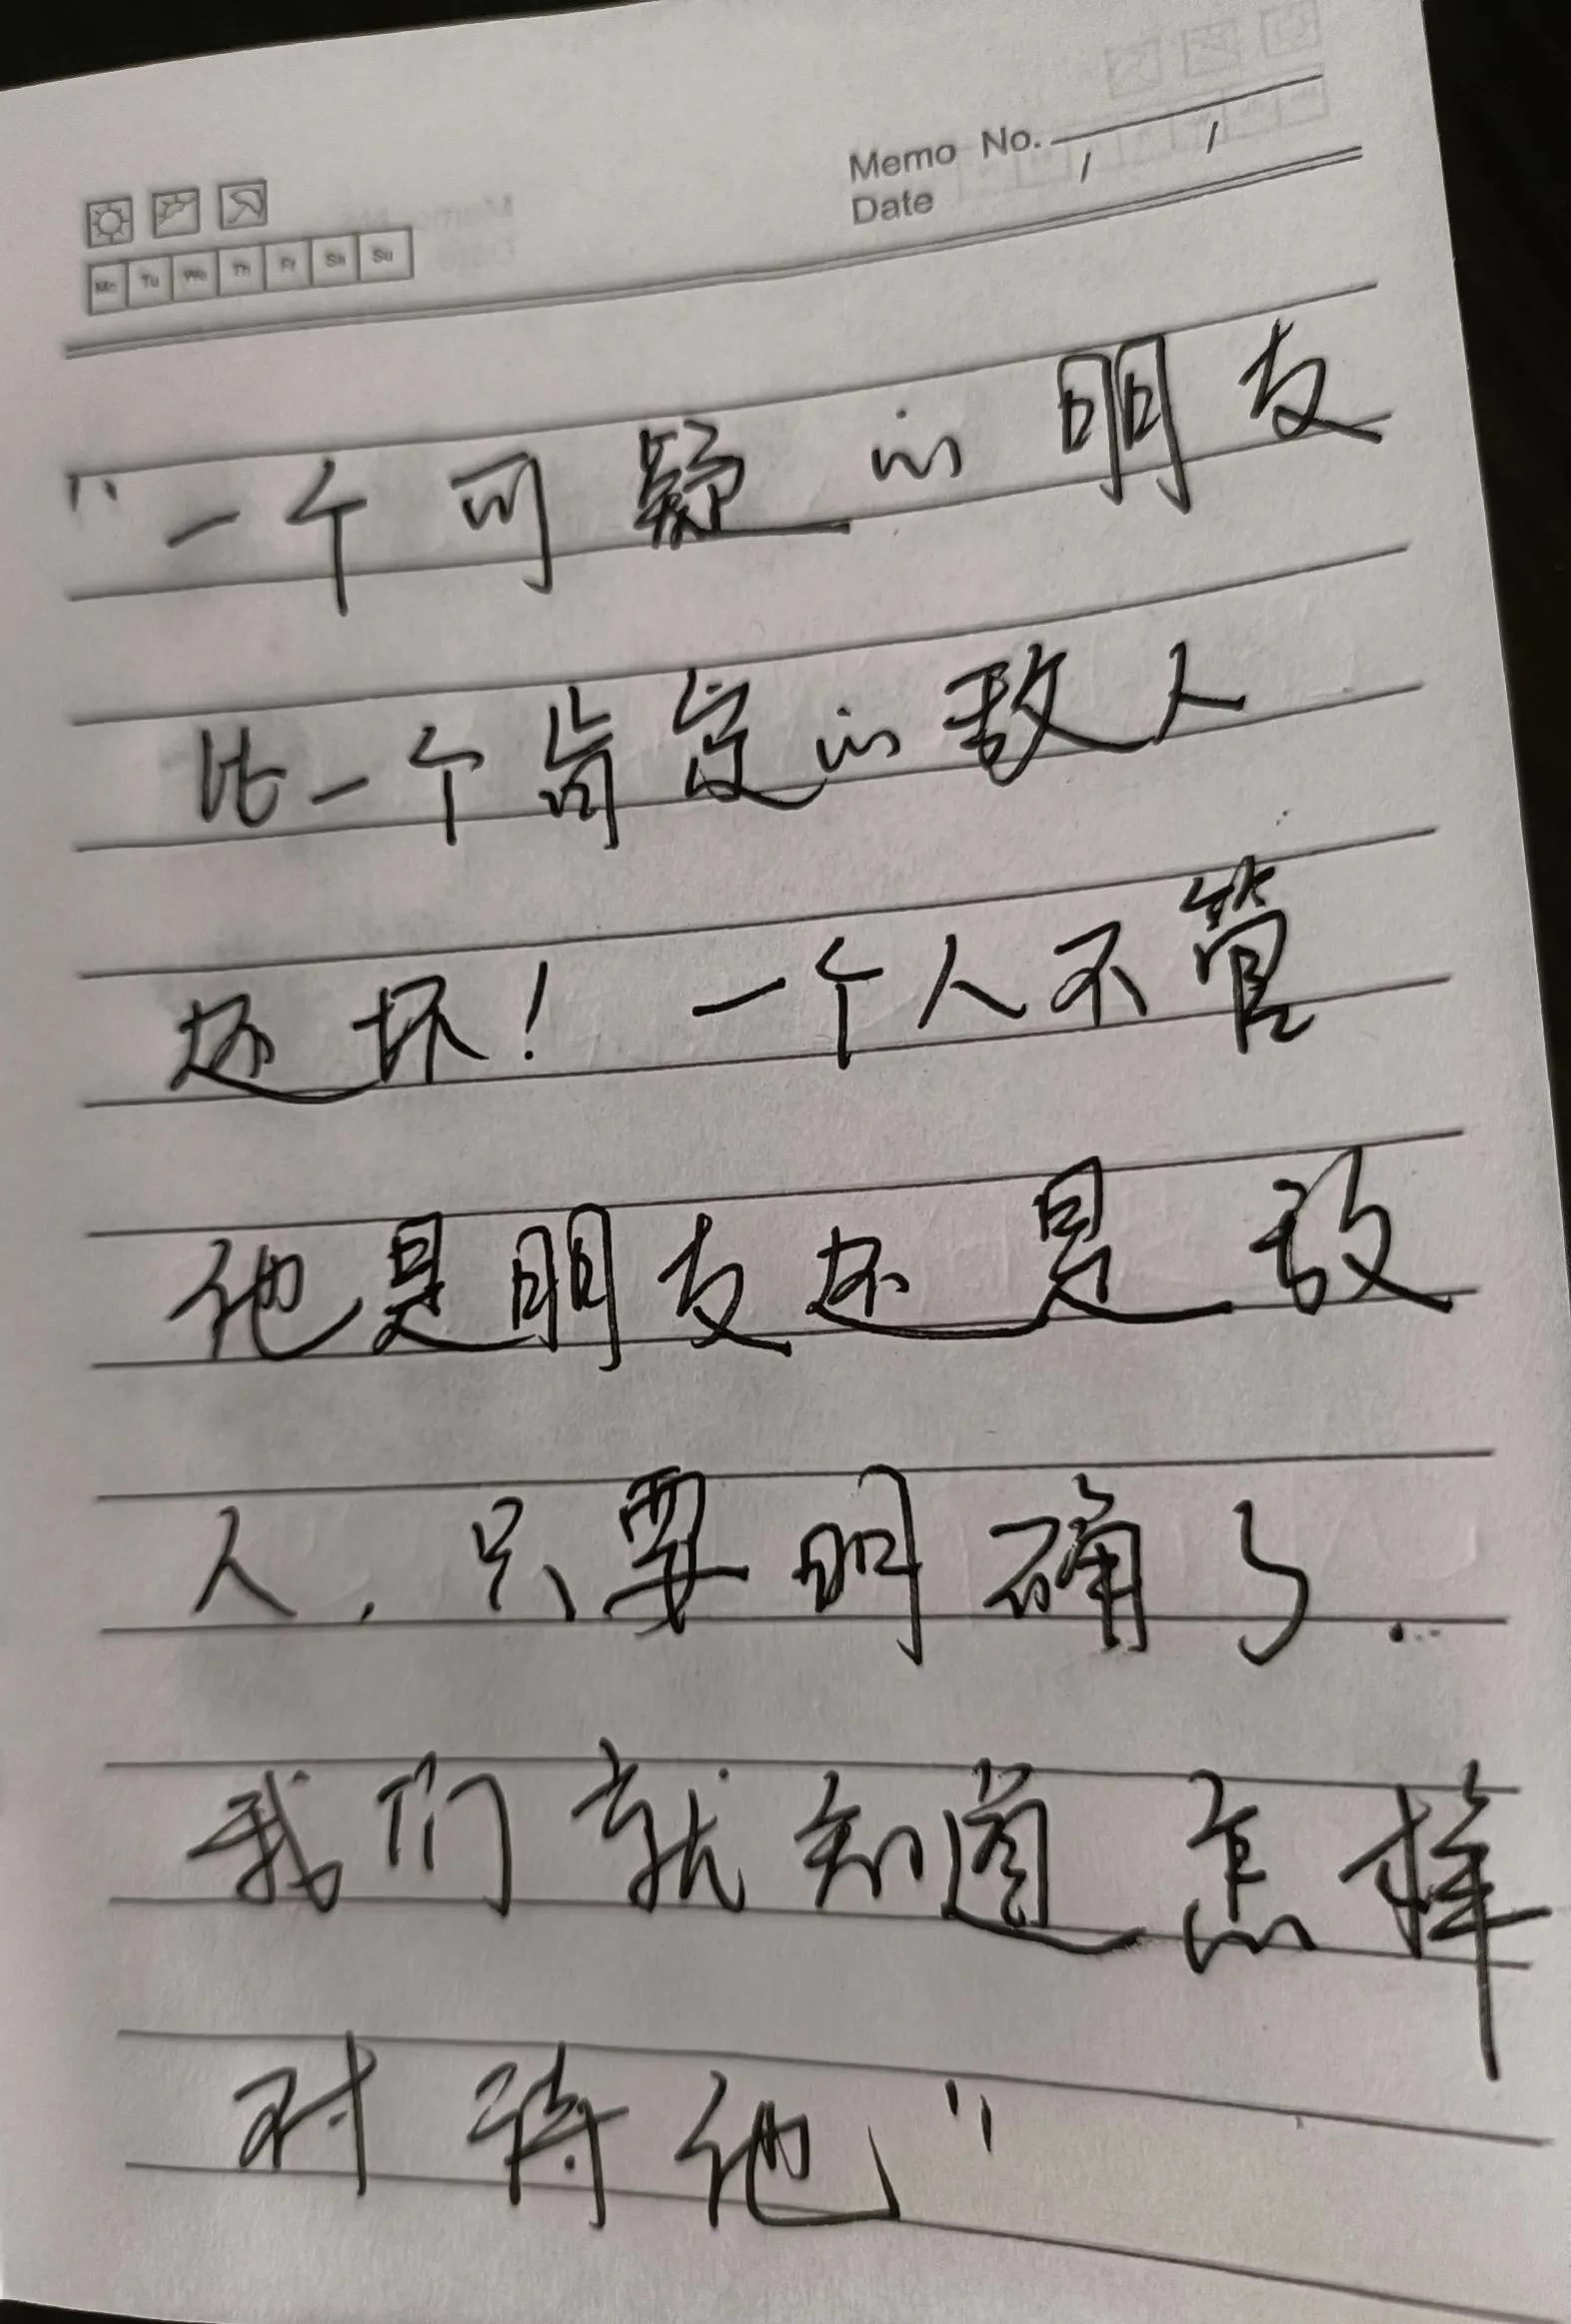 Memo No.
Date / /
Mo Tu We Th Fr Sa Su
“一个可疑的朋友
比一个肯定的敌人
还坏！一个人不管
他是朋友还是敌
人，只要明确了.
我们就知道怎样
对待他”